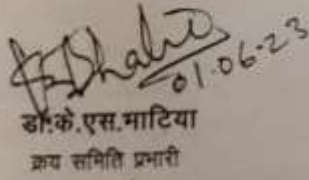 01.06.23
डॉ.के.एस.भाटिया
क्रय समिति प्रभारी